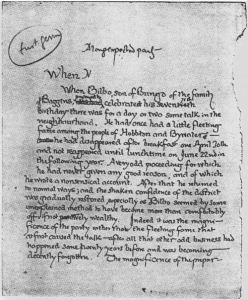 first page
A long expected party
When
When Bilbo, son of Bungo of the family
of Baggins, celebrated his seventieth
birthday there was for a day or two some talk in the
neighbourhood. He had once had a little fleeting
fame among the people of Hobbiton and Bywater
he had disappeared after breakfast one April 30th
and not reappeared until lunchtime on June 22nd in
the following year. A very odd proceeding for which
he had never given any good reason, and of which
he wrote a nonsensical account. After that he returned
to normal ways; and the shaken confidence of the district
was gradually restored, especially as Bilbo seemed by some
unexplained method to have become more than comfortably
off, if not positively wealthy. Indeed it was the magni-
ficence of the party rather than the fleeting fame that
at first caused the talk — after all that other odd business had
happened some twenty years before and was becoming
decently forgotten. The magnificence of the